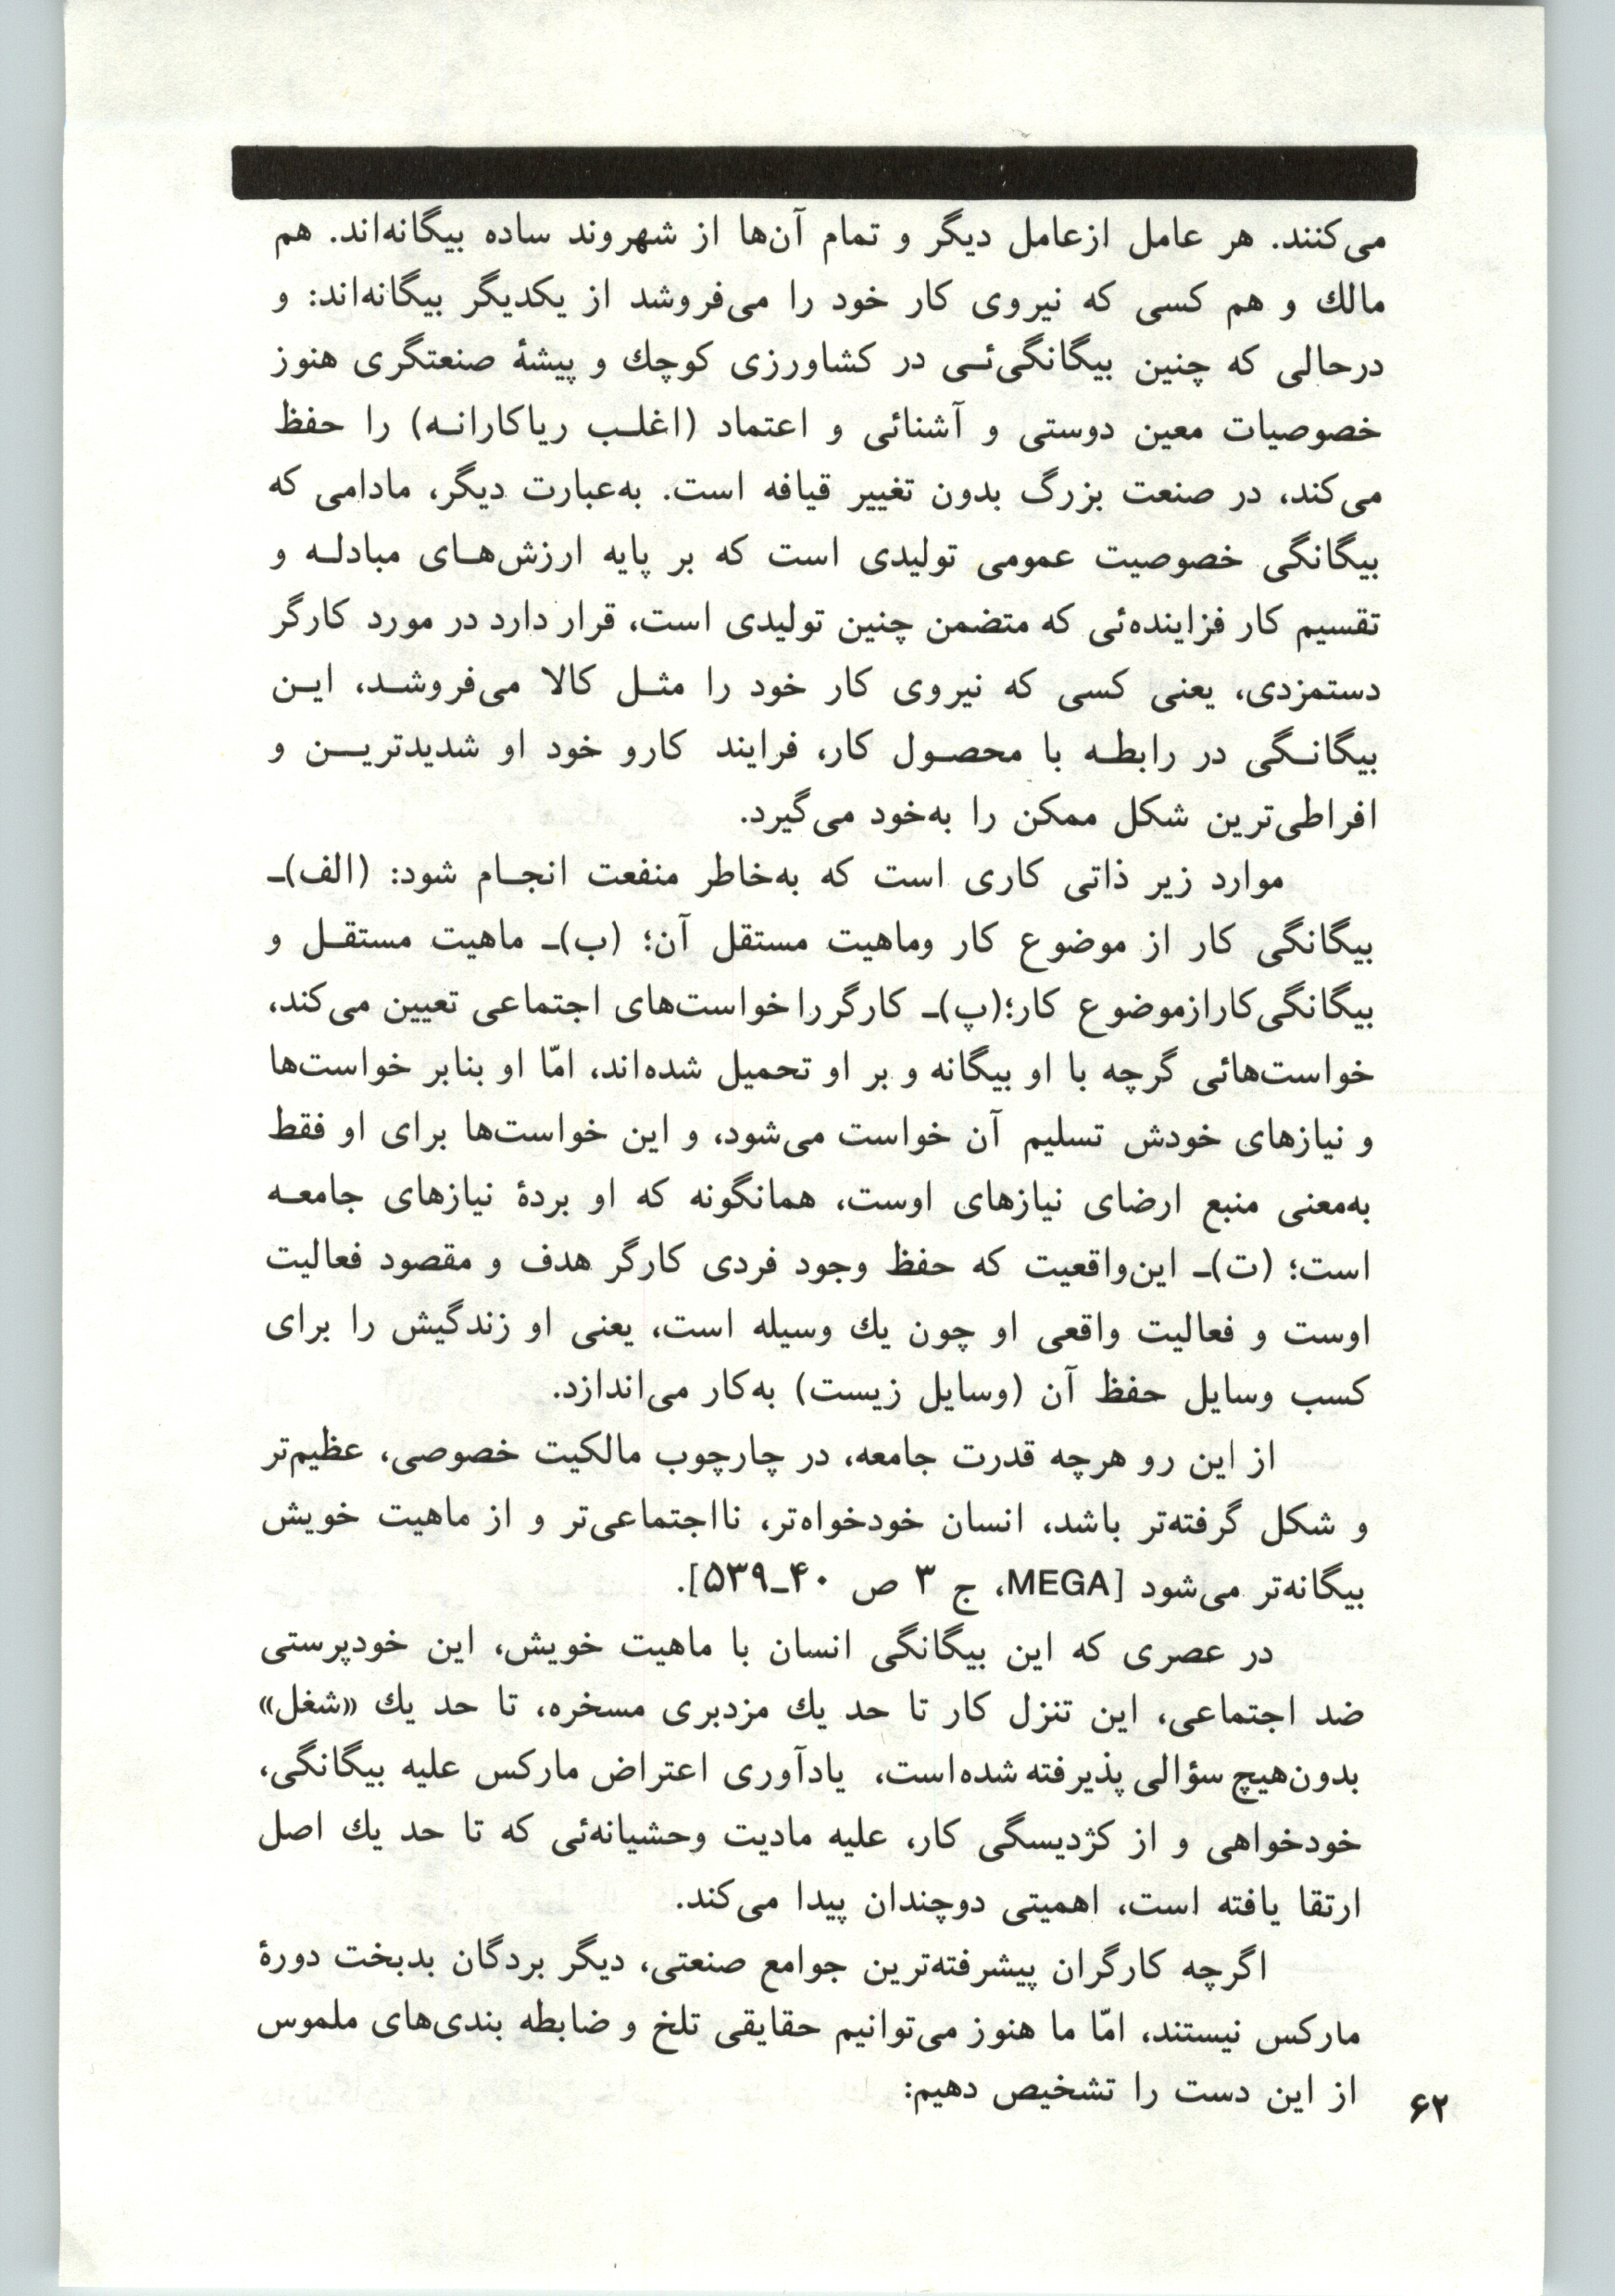 می‌کنند. هر عامل ازعامل دیگر و تمام آن‌ها از شهروند ساده بیگانه‌اند. هم
مالك و هم کسی که نیروی کار خود را می‌فروشد از یکدیگر بیگانه‌اند: و
درحالی که چنین بیگانگی‌ئـی در کشاورزی کوچك و پیشهٔ صنعتگری هنوز
خصوصیات معین دوستی و آشنائی و اعتماد (اغلـب ریاکارانـه) را حفظ
می‌کند، در صنعت بزرگ بدون تغییر قیافه است. به‌عبارت دیگر، مادامی که
بیگانگی خصوصیت عمومی تولیدی است که بر پایه ارزش‌هـای مبادلـه و
تقسیم کار فزاینده‌ئی که متضمن چنین تولیدی است، قرار دارد در مورد کارگر
دستمزدی، یعنی کسی که نیروی کار خود را مثـل کالا می‌فروشـد، ایـن
بیگانـگی در رابطـه با محصـول کار، فرایند کارو خود او شدیدتریـــن و
افراطی‌ترین شکل ممکن را به‌خود می‌گیرد.
موارد زیر ذاتی کاری است که به‌خاطر منفعت انجـام شود: (الف)ـ
بیگانگی کار از موضوع کار وماهیت مستقل آن؛ (ب)ـ ماهیت مستقـل و
بیگانگی‌کارازموضوع کار؛(پ)ـ کارگررا خواست‌های اجتماعی تعیین می‌کند،
خواست‌هائی گرچه با او بیگانه و بر او تحمیل شده‌اند، امّا او بنابر خواست‌ها
و نیازهای خودش تسلیم آن خواست می‌شود، و این خواست‌ها برای او فقط
به‌معنی منبع ارضای نیازهای اوست، همانگونه که او بردهٔ نیازهای جامعـه
است؛ (ت)ـ این‌واقعیت که حفظ وجود فردی کارگر هدف و مقصود فعالیت
اوست و فعالیت واقعی او چون یك وسیله است، یعنی او زندگیش را برای
کسب وسایل حفظ آن (وسایل زیست) به‌کار می‌اندازد.
از این رو هرچه قدرت جامعه، در چارچوب مالکیت خصوصی، عظیم‌تر
و شکل گرفته‌تر باشد، انسان خودخواه‌تر، نااجتماعی‌تر و از ماهیت خویش
بیگانه‌تر می‌شود [MEGA، ج ۳ ص ۴۰ـ۵۳۹].
در عصری که این بیگانگی انسان با ماهیت خویش، این خودپرستی
ضد اجتماعی، این تنزل کار تا حد یك مزدبری مسخره، تا حد یك «شغل»
بدون‌هیچ سؤالی پذیرفته شده‌است، یادآوری اعتراض مارکس علیه بیگانگی،
خودخواهی و از کژدیسگی کار، علیه مادیت وحشیانه‌ئی که تا حد یك اصل
ارتقا یافته است، اهمیتی دوچندان پیدا می‌کند.
اگرچه کارگران پیشرفته‌ترین جوامع صنعتی، دیگر بردگان بدبخت دورهٔ
مارکس نیستند، امّا ما هنوز می‌توانیم حقایقی تلخ و ضابطه بندی‌های ملموس
از این دست را تشخیص دهیم:
۶۲